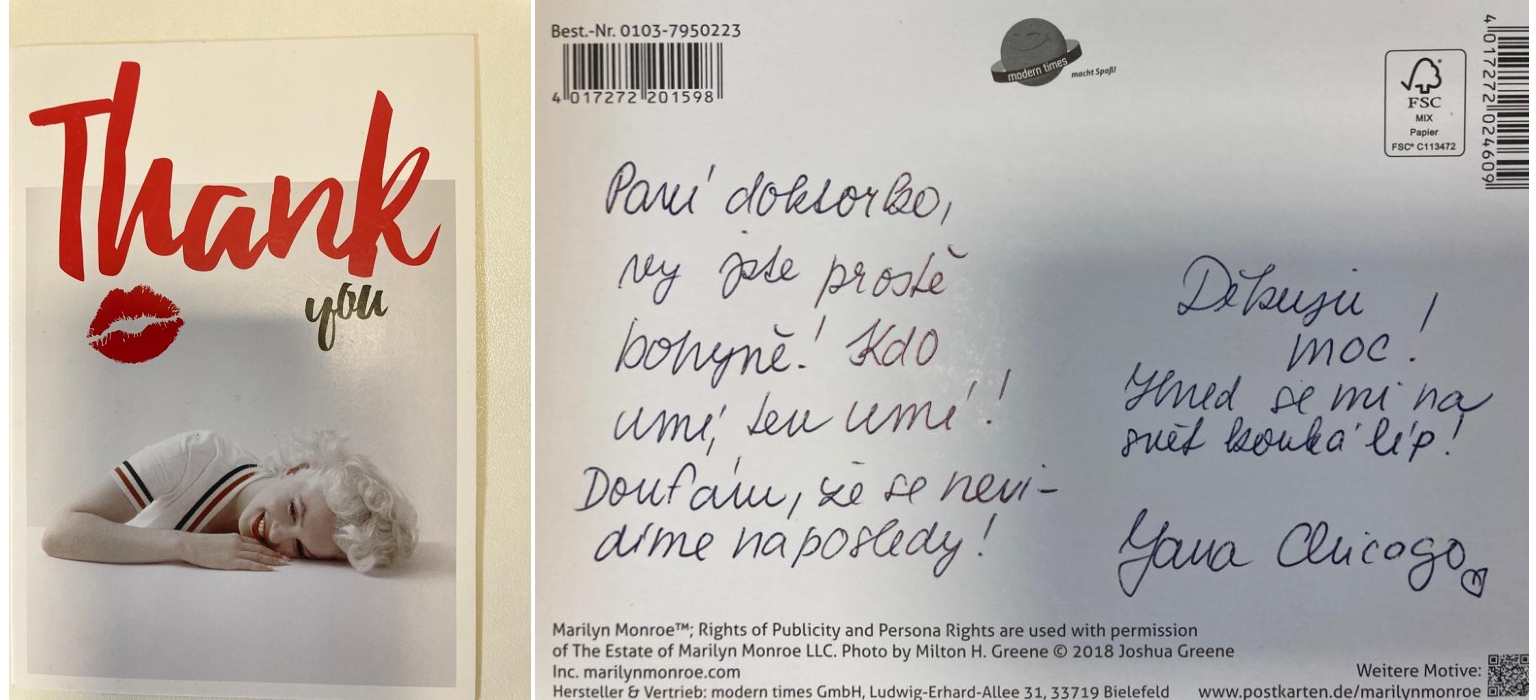 Thank
you
Best.-Nr. 0103-7950223
4 017272 201598
modern times
macht Spaß!
FSC
MIX
Papier
FSC® C113472
4 017272 024609
Paní doktorko,
vy jste prostě
bohyně! Kdo
umí, ten umí!!
Doufám, že se nevi-
díme naposledy!
Děkuju
moc!
Ihned se mi na
svět kouká líp!
Yana Chicago
Marilyn Monroe™; Rights of Publicity and Persona Rights are used with permission
of The Estate of Marilyn Monroe LLC. Photo by Milton H. Greene © 2018 Joshua Greene
Inc. marilynmonroe.com
Hersteller & Vertrieb: modern times GmbH, Ludwig-Erhard-Allee 31, 33719 Bielefeld
Weitere Motive:
www.postkarten.de/marilynmonroe